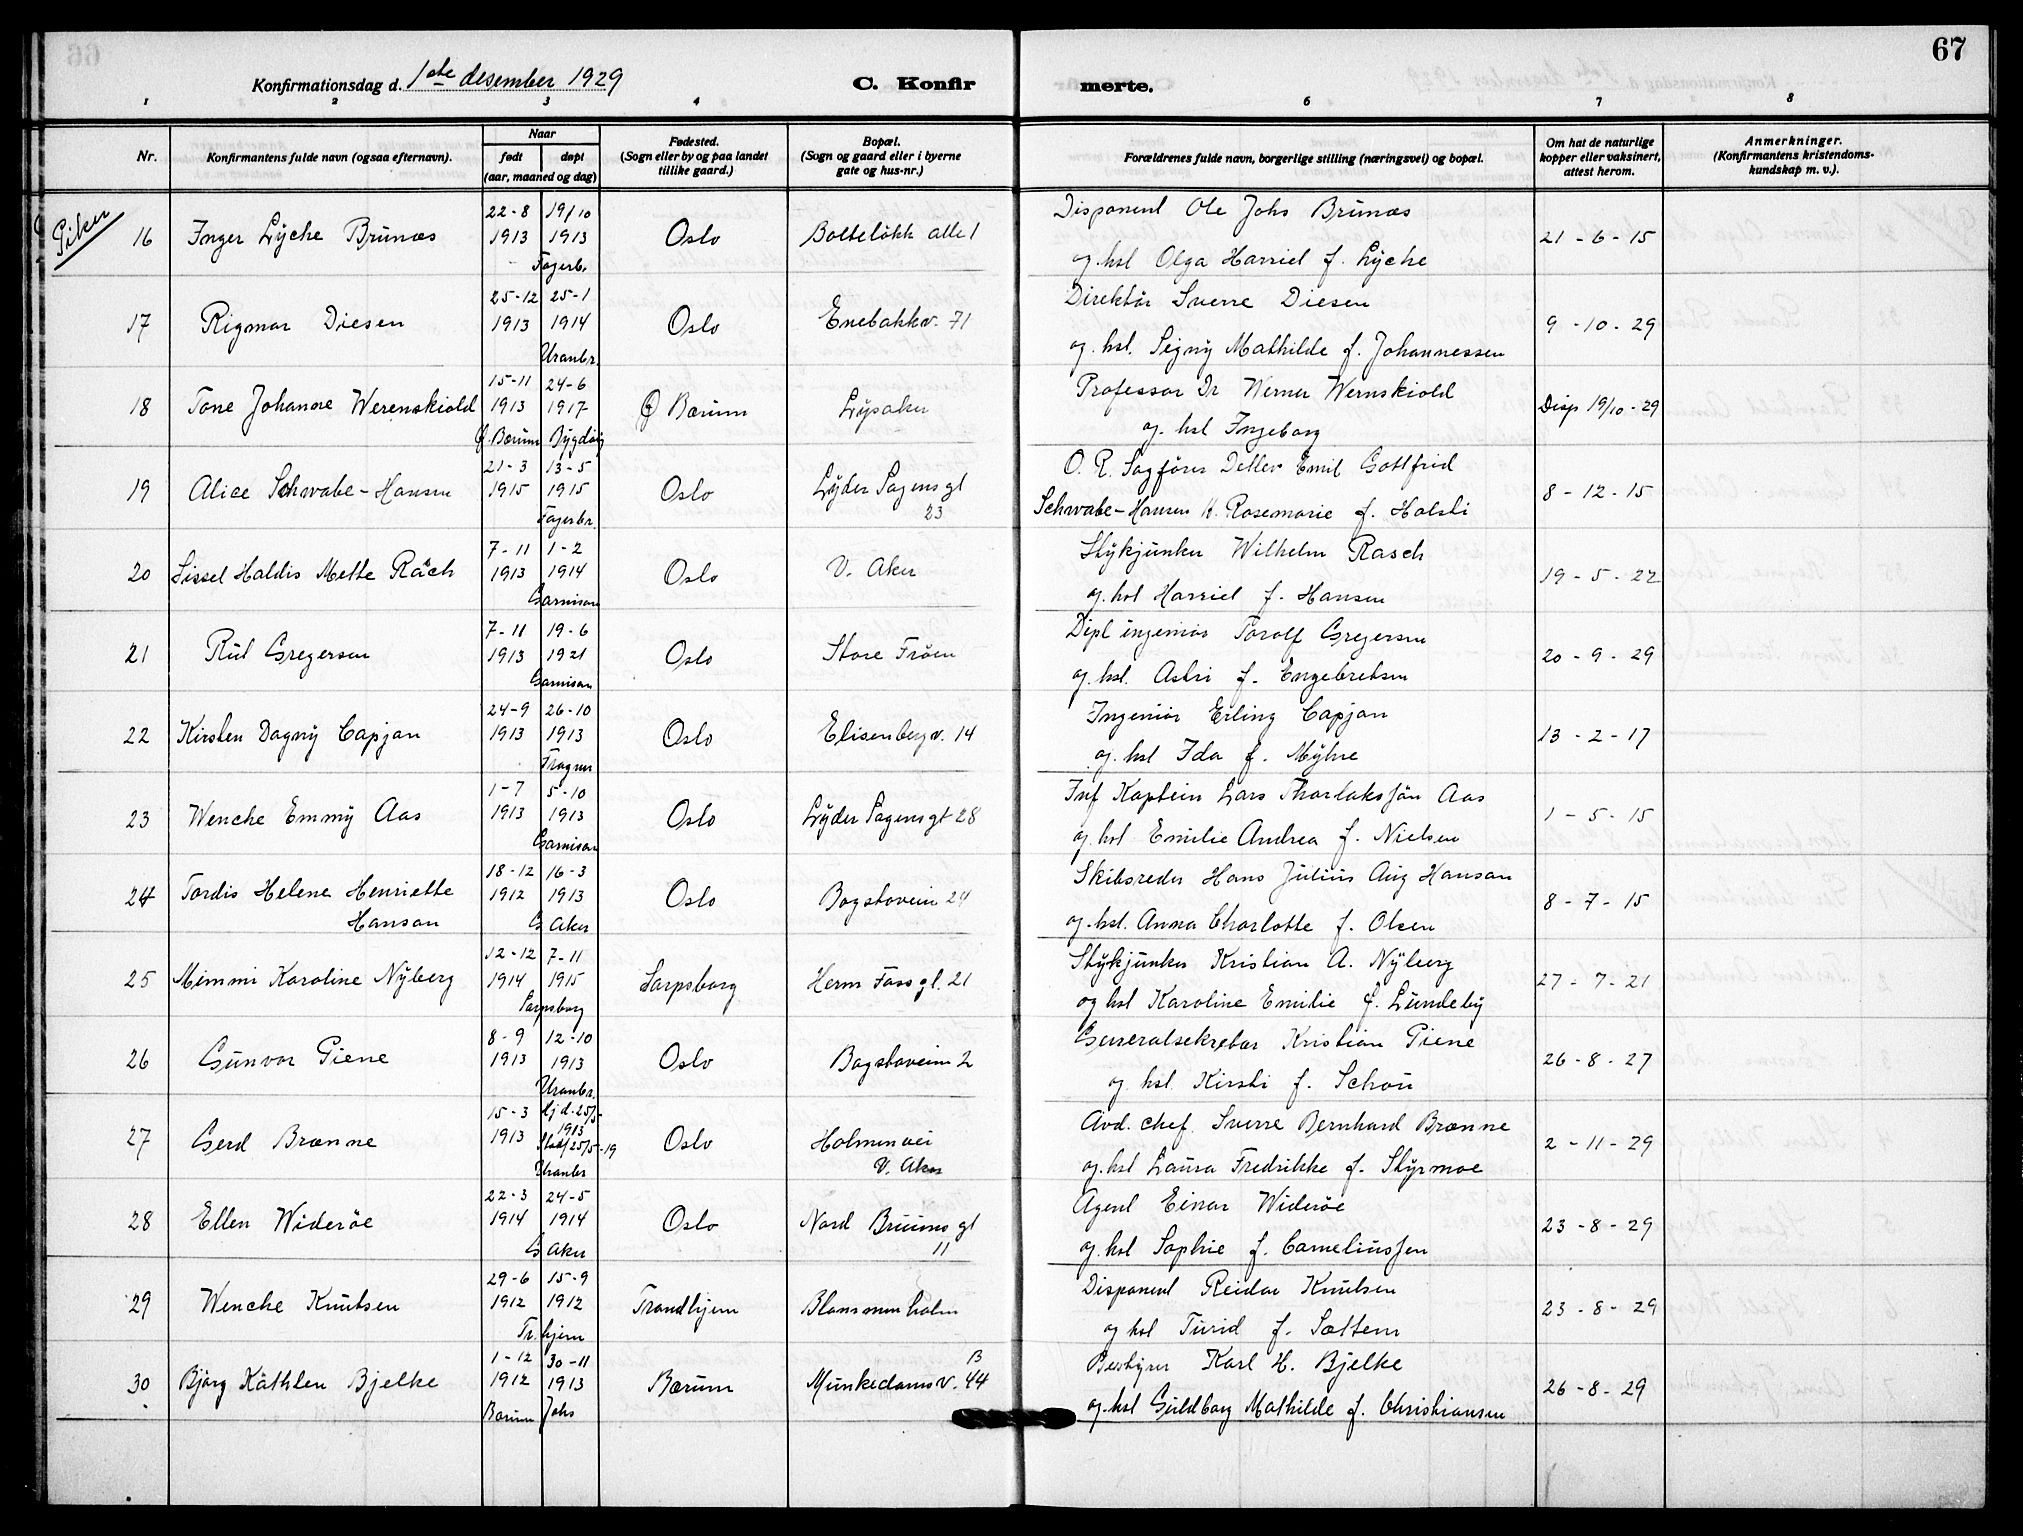 67
Konfirmationsdag d. 1ste desember 1929
C. Konfirmerte.
1 2 3 4 6 7 8
Nr.
Konfirmantens fulde navn (ogsaa efternavn).
Naar
født døpt
(aar, maaned og dag)
Fødested.
(Sogn eller by og paa landet
tillike gaard.)
Bopæl.
(Sogn og gaard eller i byerne
gate og hus-nr.)
Forældrenes fulde navn, borgerlige stilling (næringsvei) og bopæl.
Om hat de naturlige
kopper eller vaksinert,
attest herom.
Anmerkninger.
(Konfirmantens kristendoms-
kundskap m. v.).
Piker
22-8 19/10 Disponent Ole Johs Brünæs
16 Inger Lyche Brünæs 1913 1913 Oslo Bolteløkk alle 1 21-6-15
Fagerb. og hst Olga Harriet f. Lyche
25-12 25-1 Direktör Sverre Diesen
17 Rigmor Diesen 1913 1914 Oslo Enebakkv. 71 9-10-29
Uranbr. og. hst. Signy Mathilde f. Johannessen
15-11 24-6 Professor Dr Werner Wernskiold
18 Tone Johanne Werenskiold 1913 1917 Ø Bærum Lysaker Disp 19/10-29
Ø. Bærum Bygdöy og. hst Ingeborg
21-3 13-5 O. R. Sagförer Detlev Emil Gottfried
19 Alice Schwabe-Hansen 1915 1915 Oslo Lyder Sagens gt 8-12-15
Fagerbr. 23 Schwabe-Hansen H. Rosemarie f. Holsti
7-11 1-2 Stykjunker Wilhelm Rasch
20 Sissel Haldis Mette Räch 1913 1914 Oslo V. Aker 19-5-22
Garnison og. hst Harriet f. Hansen
7-11 19-6 Dipl ingeniör Torolf Gregersen
21 Rut Gregersen 1913 1921 Oslo Store Fröen 20-9-29
Garnison og. hst. Astri f. Engebretsen
24-9 26-10 Ingeniör Erling Capjon
22 Kirsten Dagny Capjon 1913 1913 Oslo Elisenbergv. 14 13-2-17
Frogner og. hst Ida f. Myhre
1-7 5-10 Inf Kaptein Lars Thorlaksjön Aas
23 Wenche Emmy Aas 1913 1913 Oslo Lyder Sagens gt 28 1-5-15
Garnison og. hst Emilie Andrea f. Nielsen
18-12 16-3 Skibsreder Hans Julius Aug Hansen
24 Tordis Helene Henriette 1912 1913 Oslo Bogstovein 24 8-7-15
Hanson G Aker og. hst. Anna Charlotte f. Olsen
12-12 7-11 Stykjunker Kristian A. Nyberg
25 Mimmi Karoline Nyberg 1914 1915 Sarpsborg Herm Foss gt. 21 27-7-21
Sarpsborg og hst Karoline Emilie f. Lundeby
8-9 12-10 Generalsekretær Kristian Piene
26 Gunvor Piene 1913 1913 Oslo Bogstoveien 2 26-8-27
Uranbr. og hst. Kirsti f. Schou
15-3 Hj d. 25/5- Avd. chef. Sverre Bernhard Brænne
27 Gerd Brænne 1913 1913 Oslo Holmenvei 2-11-29
Stad/25/5-19
Uranbr V. Aker og. hst Laura Fredrikke f. Styrmoe
22-3 24-5 Agent Einar Wideröe
28 Ellen Wideröe 1914 1914 Oslo Nord Bruuns gt 23-8-29
G Aker 11 og. hst Sophie f. Corneliussen
29-6 15-9 Disponent Reidar Knutsen
29 Wenche Knutsen 1912 1912 Trondhjem Blommenholm 23-8-29
Tr. hjem og hst Turid f. Sættem
1-12 30-11 B Bestyrer Karl H. Bjelke
30 Bjørg Käthlen Bjelke 1912 1913 Bærum Munkedamsv. 44 26-8-29
Bærum Johs og. hst Guldborg Mathilde f. Christiansen